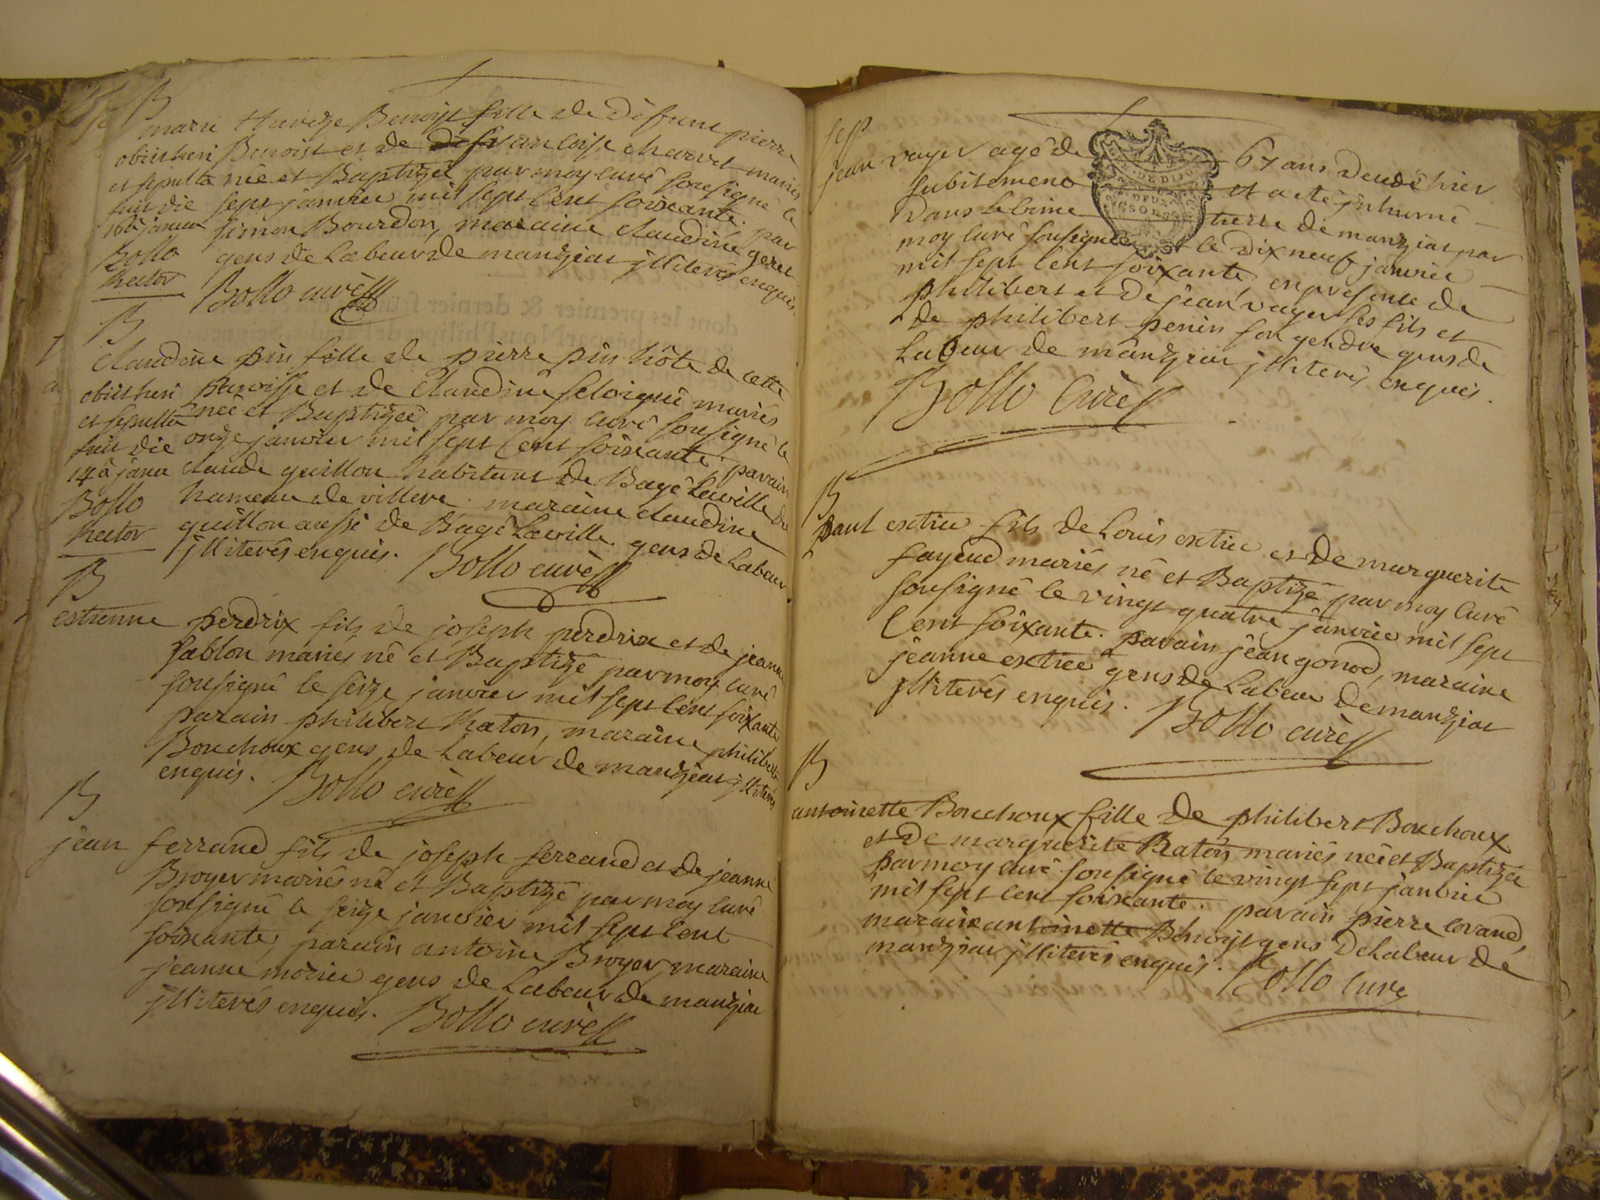 B
marie thereze Benoist fille de defunt pierre
Benoist et de francoise charvet mariés
née et Baptizée par moy curé sousigné le
sept janvier mil sept cent soixante. par
simon Bourdon, maraine claudine geret
gens de Labeur de manziat jlliterés enquis
Bollo curé
obiit heri
et sepulta
fuit die
16a janua
Bollo
Rector
B
claudine pin fille de pierre pin hôte de cette
paroisse et de claudine feloigue mariés
née et Baptizée par moy curé sousigné le
onze janvier mil sept cent soixante. parain
claude guillon habitant de Bagé Laville du
hameau de villere. maraine claudine
guillon aussi de Bagé Laville gens de Labeur
jlliterés enquis. Bollo curé
obiit heri
et sepulta
fuit die
14a janu
Bollo
Rector
B
estienne perdrix fils de joseph perdrix et de jeanne
sablon mariés né et Baptizé par moy curé
sousigné le seize janvier mil sept cent soixante
parain philibert Raton, maraine philiberte
Bouchoux gens de Labeur de manziat jlliterés
enquis. Bollo curé
B
jean ferrand fils de joseph ferrand et de jeanne
Broyer mariés né et Baptizé par moy curé
sousigné le seize janvier mil sept cent
soixante, parain antoine Broyer maraine
jeanne morier gens de Labeur de manziat
jlliterés enquis. Bollo curé
sep
jean voyer agé de 67 ans decedé hier
subitement et a eté jnhumé
dans le cime tiere de manziat par
moy curé sousigné le dix neuf janvier
mil sept cent soixante, en presence de
philibert et de jean voyer ses fils et
de philibert penin son gendre gens de
Labeur de manziat jlliterés enquis.
Bollo Curé
B
paul extier fils de Louis extier et de marguerite
fayend mariés né et Baptizé par moy curé
sousigné le vingt quatre janvier mil sept
Cent soixante. parain jean gonod, maraine
jeanne extier gens de Labeur de manziat
jlliterés enquis. Bollo curé
B
antoinette Bouchoux fille de philibert Bouchoux
et de marguerite Raton mariés née et Baptizée
par moy curé sousigné le vingt sept janvier
mil sept cent soixante. parain pierre lorand,
maraine antoinette Benoist gens de Labeur de
manziat jlliterés enquis. Bollo Curé